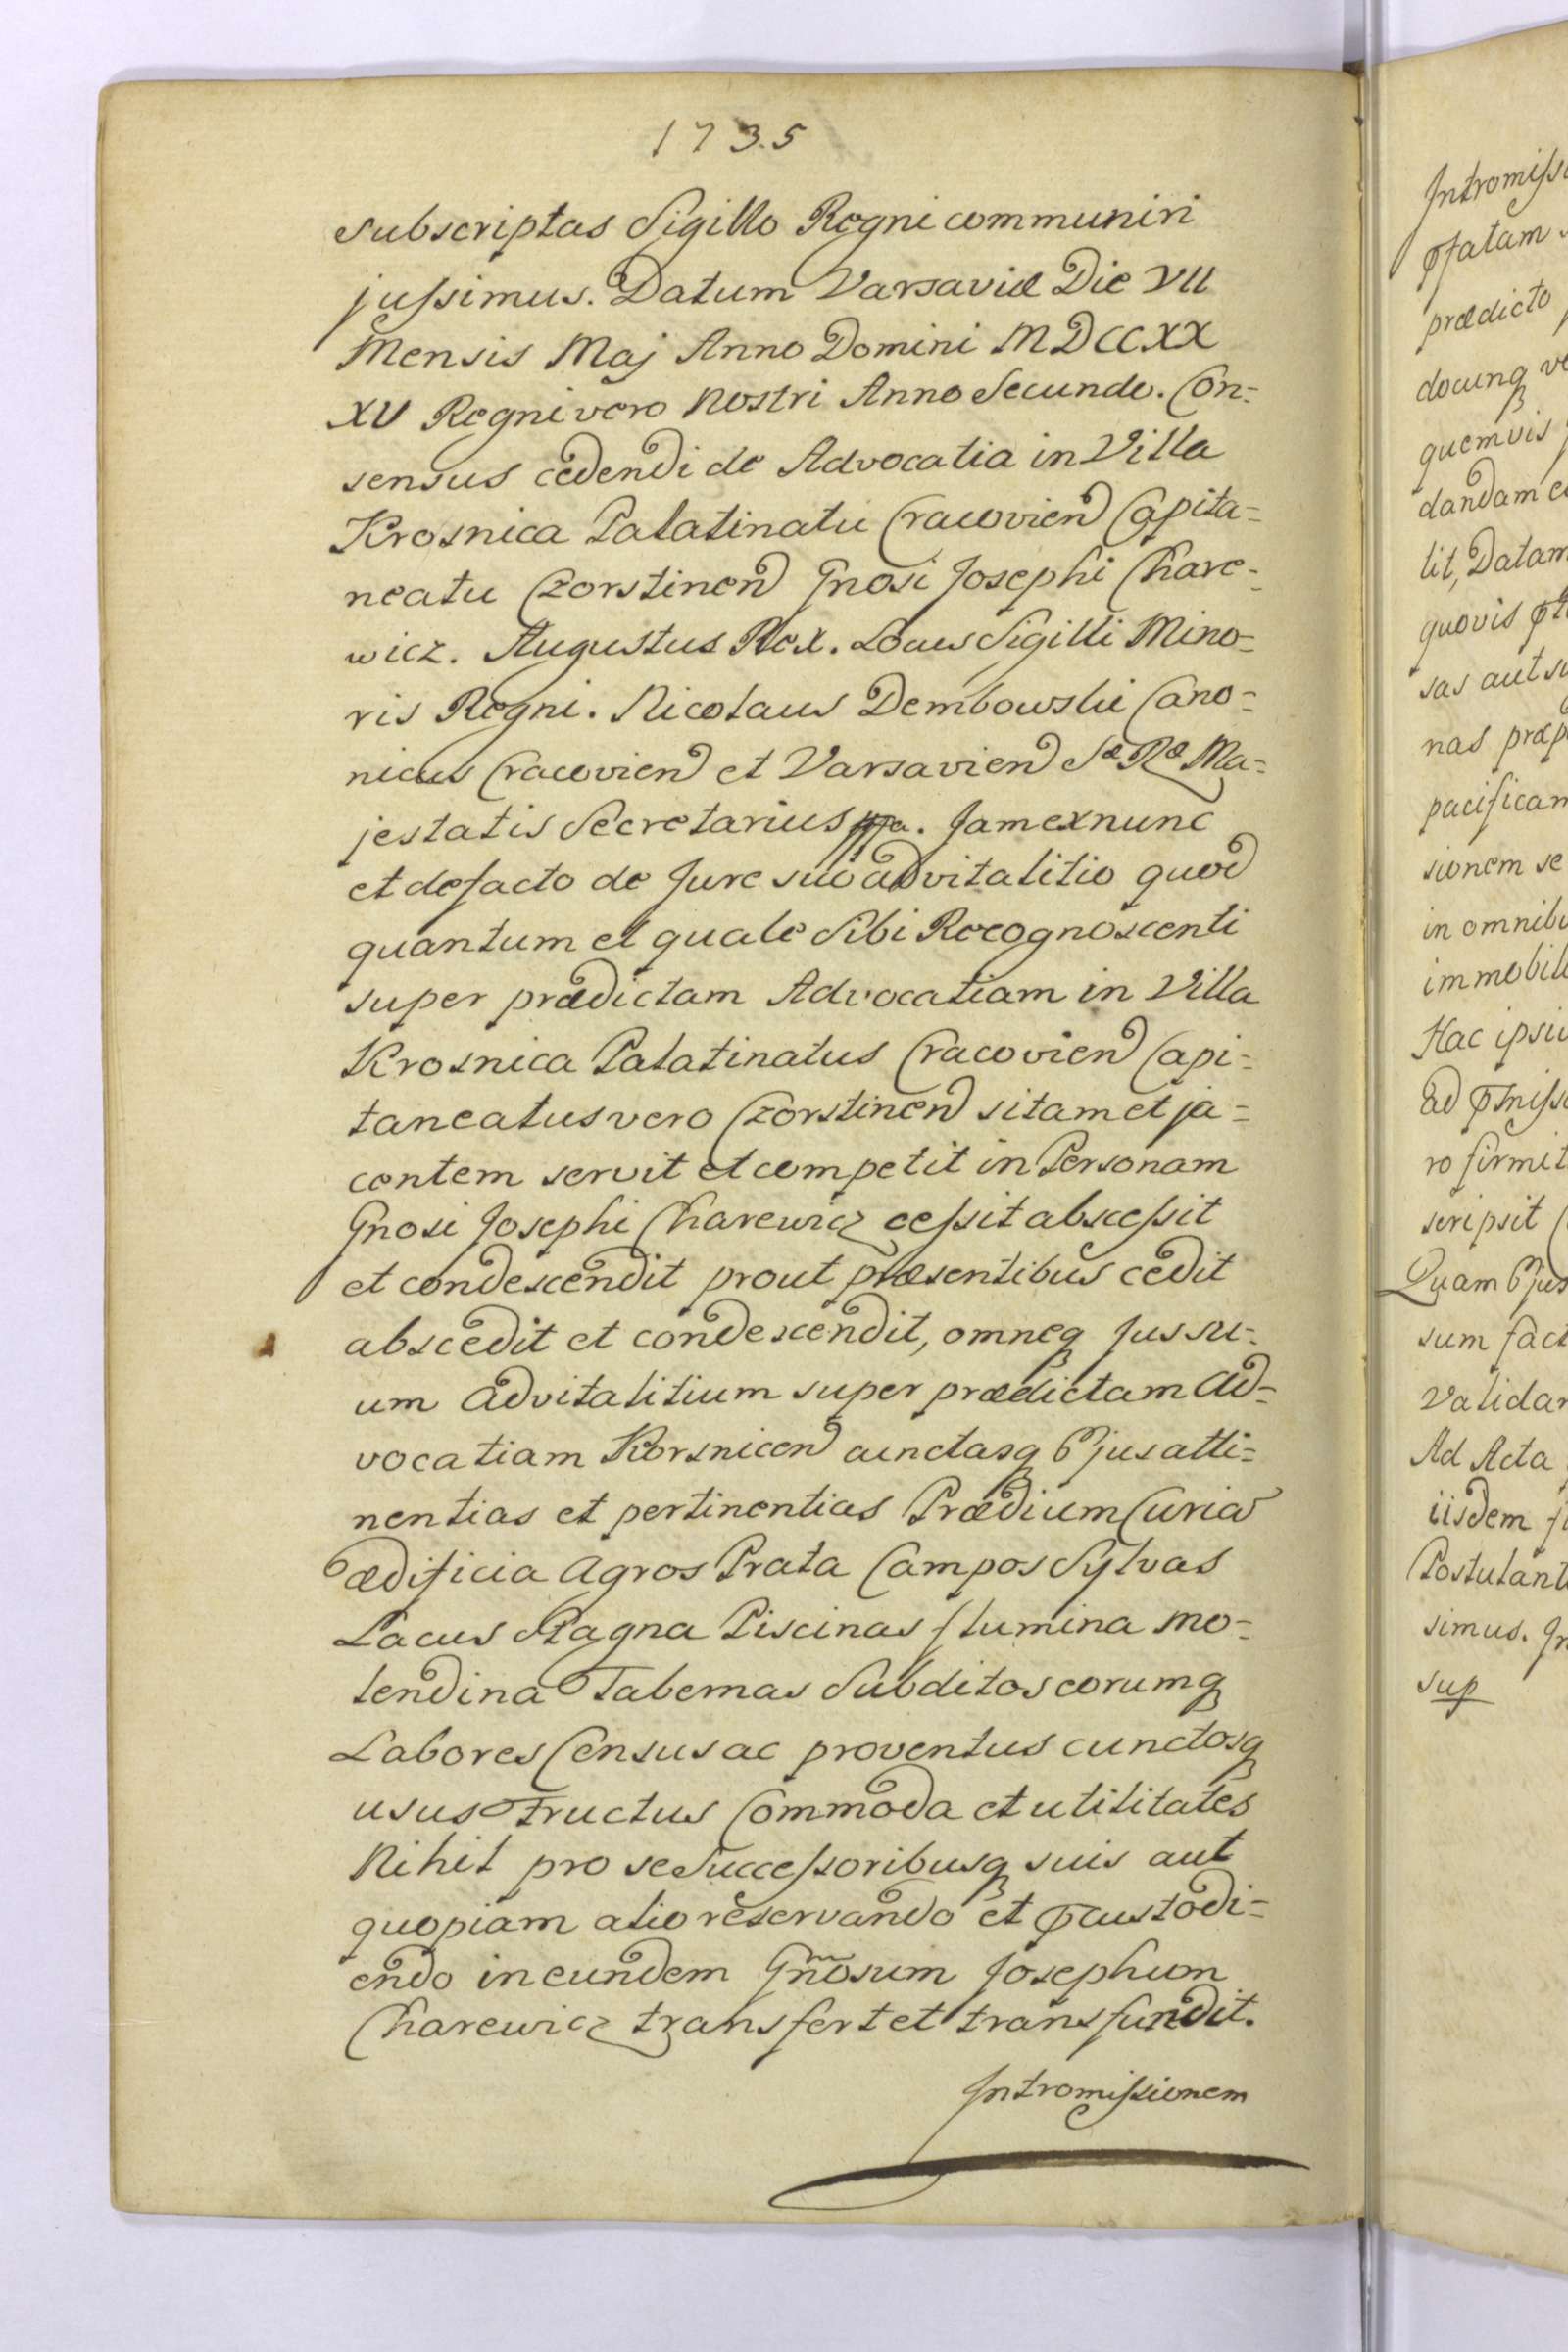 1735
subscriptas Sigillo Regni communiri
jussimus. Datum Varsaviæ Die VII
Mensis Maj Anno Domini MDCCXX
XV Regni vero Nostri Anno Secundo. Con=
sensus cedendi de Advocatia in Villa
Krosnica Palatinatu Cracovien Capita=
neatu Czorstinen Gnosi Josephi Chare=
wicz. Augustus Rex. Locus Sigilli Mino=
ris Regni. Nicolaus Dembowski Cano=
nicus Cracovien et Varsavien Sæ Ræ Ma=
jestatis Secretarius mpa. Jam ex nunc
et defacto de Jure suo advitalitio quod
quantum et quale Sibi Recognoscenti
super prædictam Advocatiam in Villa
Krosnica Palatinatus Cracovien Capi=
taneatus vero Czorstinen sitam et ja=
centem servit et competit in Personam
Gnosi Josephi Charewicz cessit abscessit
et condescendit prout præsentibus cedit
abscedit et condescendit, omneq Jus su=
um advitalitium super prædictam Ad=
vocatiam Korsnicen cunctasq Ejus atti=
nentias et pertinentias Prædium Curiam
ædificia Agros Prata Campos Sylvas
Lacus Stagna Piscinas flumina mo=
lendina Tabernas Subditos eorumq
Labores Census ac proventus cunctosq
usus Fructus Commoda et utilitates
Nihil pro se Successoribusq suis aut
quopiam alio reservando et pcustodi=
endo in eundem Gnosum Josephum
Charewicz transfert et transfundit.
Intromissionem
Intromissi
pfatam
prædicto
docunq ve
quemvis
dandam e
tit, Datam
quovis
sas aut su
nas præp
pacifican
sionem se
in omnibu
immobili
Hac ipsiu
Ad pmiss
ro firmit
scripsit
Quam Ejus
sum fact
Validar
Ad Acta
iisdem
Postulant
simus. In
sup